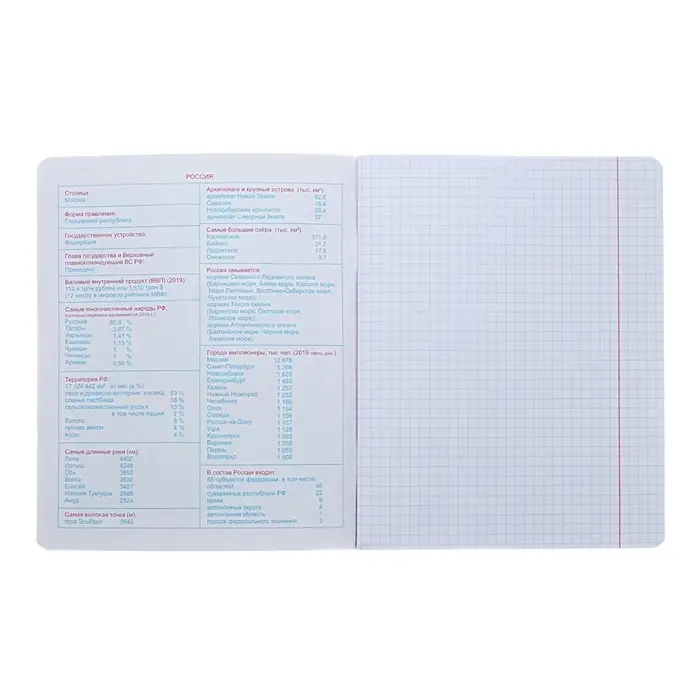 РОССИЯ
Столица:
Москва
Форма правления:
Смешанная республика
Государственное устройство:
Федерация
Глава государства и Верховный
главнокомандующий ВС РФ:
Президент
Валовый внутренний продукт (ВВП) (2019):
(12 место в мировом рейтинге МВФ)
Самые многочисленные народы РФ:
Русские 80,9 %
Татары 3,87 %
Украинцы 1,41 %
Башкиры 1,15 %
Чуваши 1 %
Чеченцы 1 %
Армяне 0,86 %
Территория РФ:
17 124 442 км², из них (в %):
53 %
оленьи пастбища 18 %
сельскохозяйственные угодья 12 %
в том числе пашня 7 %
болота 8 %
прочие земли 4 %
воды 4 %
Самые длинные реки (км):
Лена 4400
Иртыш 4248
Обь 3650
Волга 3530
Енисей 3487
Нижняя Тунгуска 2989
Амур 2824
Самая высокая точка (м):
гора Эльбрус 5642
Архипелаги и крупные острова (тыс. км²):
архипелаг Новая Земля 82,6
Сахалин 76,4
Новосибирский архипелаг 38,4
архипелаг Северная Земля 37
Самые большие озёра (тыс. км²):
Каспийское 371,0
Байкал 31,7
Ладожское 17,6
Онежское 9,7
Россия омывается:
морями Северного Ледовитого океана
(Баренцево море, Белое море, Карское море,
Море Лаптевых, Восточно-Сибирское море,
Чукотское море);
морями Тихого океана
(Берингово море, Охотское море,
Японское море);
морями Атлантического океана
(Балтийское море, Чёрное море,
Азовское море).
Города миллионеры, тыс чел. (2019 офиц. дан.)
Москва 12 678
Санкт-Петербург 5 398
Новосибирск 1 625
Екатеринбург 1 493
Казань 1 257
Нижний Новгород 1 252
Челябинск
Омск
Самара 1 156
Ростов-на-Дону 1 137
Уфа
Красноярск
Воронеж 1 058
Пермь 1 055
Волгоград 1 008
В состав России входит:
85 субъектов федерации, в том числе:
области 46
суверенные республики РФ 22
края 9
автономные округа 4
автономная область 1
города федерального значения 3